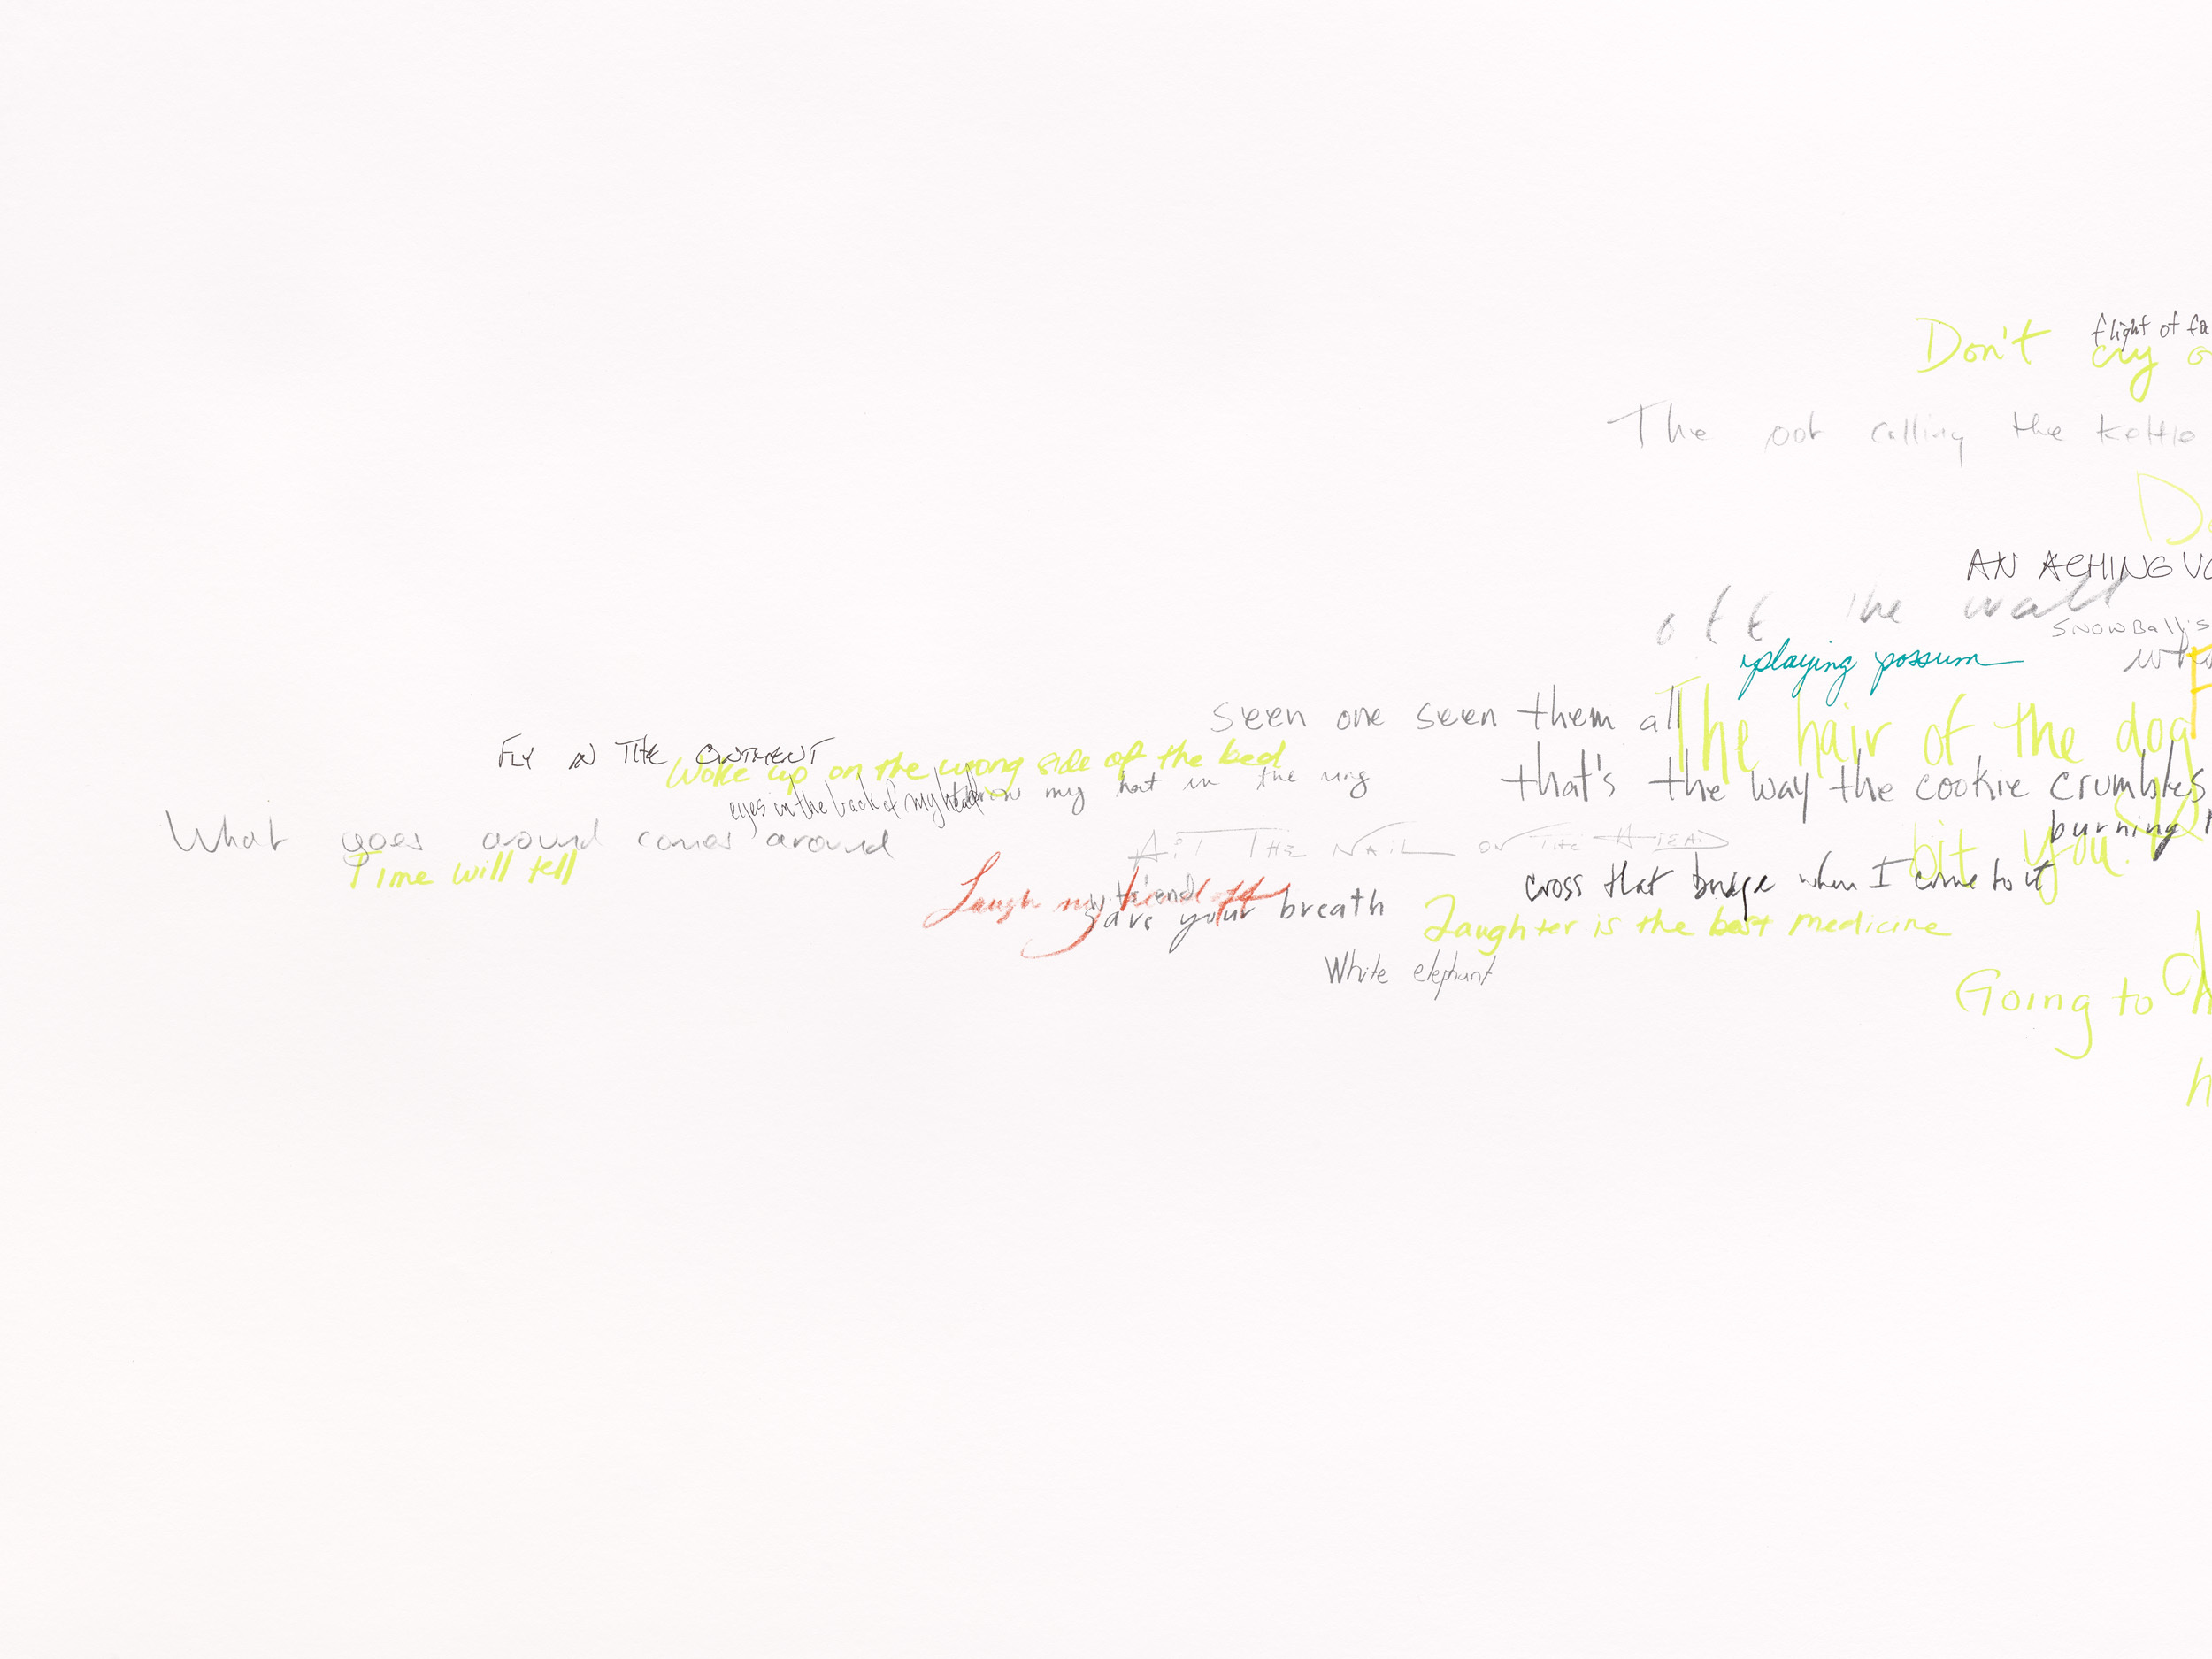 flight of
Don't cry
The calling the kettle
AN ACHING
off the wall
SNOWBall's
playing possum
seen one seen them all
The hair of the dog
FLY IN THE OINTMENT
Woke up on the wrong side of the bed
my hat in the ring
that's the way the cookie crumbles
eyes in the back of my head
burning
What goes around comes around
HIT THE NAIL ON THE HEAD
bit you
Time will tell
cross that bridge when I come to it
Laugh my head off
save your breath
Laughter is the best medicine
White elephant
Going to